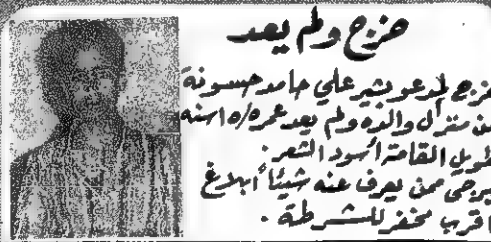 خرج ولم يعد
خرج المدعو بشير علي حامد حسونة
من منزل والده ولم يعد عمره ١٥ سنه
طويل القامة أسود الشعر.
يرجى ممن يعرف عنه شيئاً أبلاغ
اقرب مخفر للشرطة.